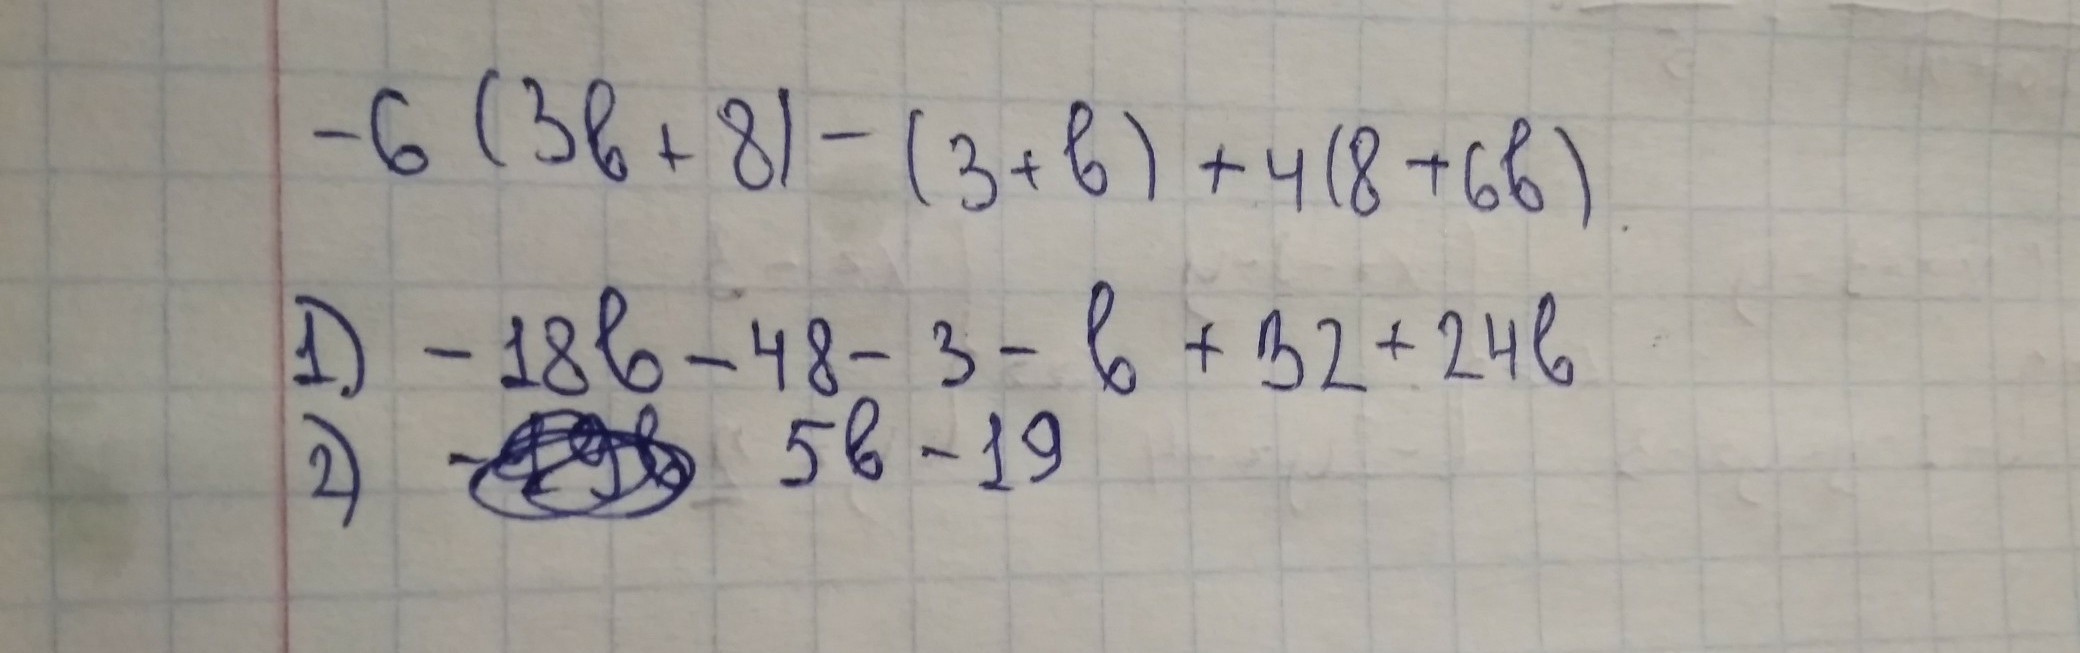 -6 (3b + 8) - (3 + b) + 4(8 + 6b)
1) - 18b - 48 - 3 - b + 32 + 24b
2) - 5b - 19